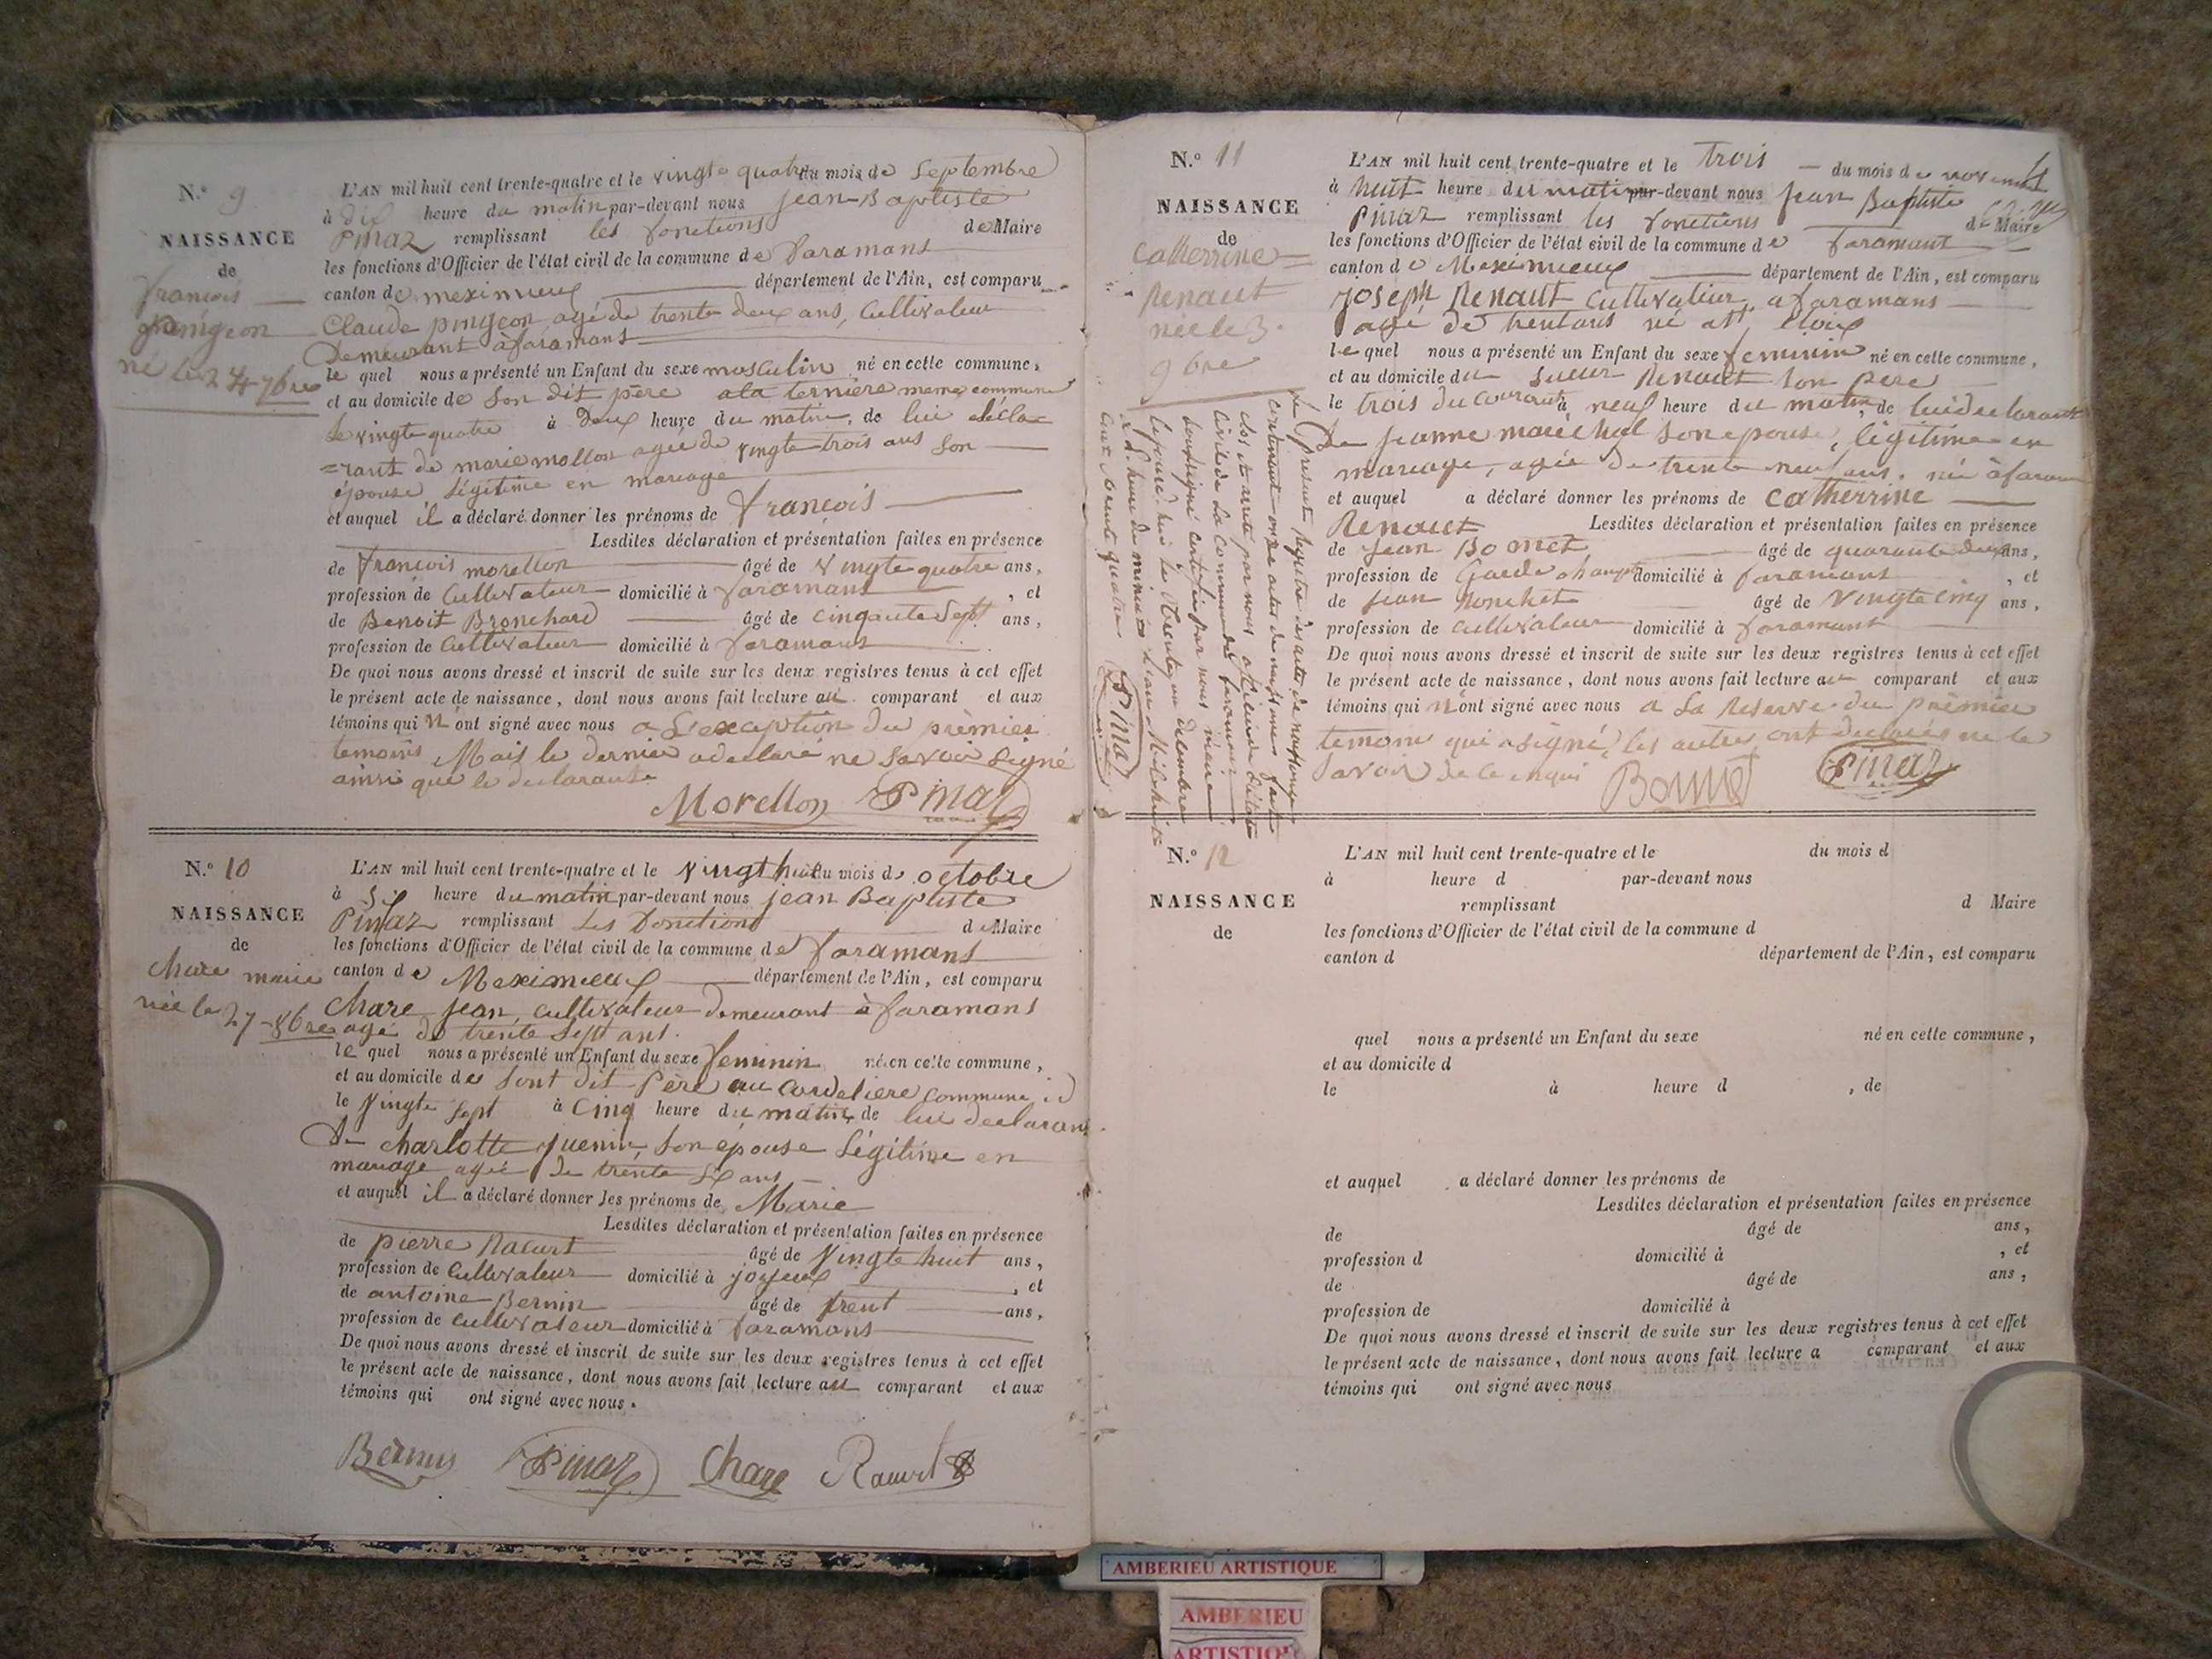 N.° 9
NAISSANCE
de
françois
pingeon
né le 24 7bre
L'AN mil huit cent trente-quatre et le vingt quatre du mois de Septembre
à dix heure du matin par-devant nous jean-Baptiste
Pinaz remplissant les fonctions de Maire
les fonctions d'Officier de l'état civil de la commune de faramans
canton de meximieux département de l'Ain, est comparu
Claude pingeon agé de trente deux ans, Cultivateur
Demeurant a faramans
le quel nous a présenté un Enfant du sexe masculin né en cette commune,
et au domicile de son dit père a la ternière meme commune
le vingte quatre à deux heure du matin, de lui décla=
=rant de marie mollon agée de vingte-trois ans son
épouse légitime en mariage
et auquel il a déclaré donner les prénoms de françois
Lesdites déclaration et présentation faites en présence
de françois morellon âgé de vingte quatre ans,
profession de Cultivateur domicilié à faramans , et
de Benoit Bronchard âgé de cinqante Sept ans,
profession de Cultivateur domicilié à faramans
De quoi nous avons dressé et inscrit de suite sur les deux registres tenus à cet effet
le présent acte de naissance, dont nous avons fait lecture au comparant et aux
témoins qui n'ont signé avec nous a L'exception du prèmier
temoins Mais le dernier a declaré ne savoir signé
ainsi que le declarant
Morellon Pinaz
N.° 10
NAISSANCE
de
Chare marie
née le 27 8bre
L'AN mil huit cent trente-quatre et le vingt huit du mois de octobre
à six heure du matin par-devant nous jean Baptiste
Pinaz remplissant les fonctions de Maire
les fonctions d'Officier de l'état civil de la commune de faramans
canton de Meximieux département de l'Ain, est comparu
Chare jean, cultivateur demeurant à faramans
agé de trente sept ans.
le quel nous a présenté un Enfant du sexe feminin né en cette commune,
et au domicile de sont dit Père au Cordeliere commune id
le vingte sept à cinq heure du matin, de lui declarant
De charlotte juenin, son épouse légitime en
mariage agée de trente six ans
et auquel il a déclaré donner les prénoms de Marie
Lesdites déclaration et présentation faites en présence
de pierre Racurt âgé de vingte huit ans,
profession de Cultivateur domicilié à joyeux , et
de antoine Bernin âgé de trent ans,
profession de Cultivateur domicilié à faramans
De quoi nous avons dressé et inscrit de suite sur les deux registres tenus à cet effet
le présent acte de naissance, dont nous avons fait lecture au comparant et aux
témoins qui ont signé avec nous.
Bernin Pinaz Chare Racurt
N.° 11
NAISSANCE
de
Catherrine
Renaut
née le 3.
9bre
L'AN mil huit cent trente-quatre et le trois du mois de novembre
à huit heure du matin par-devant nous jean Baptiste
Pinaz remplissant les fonctions de Maire
les fonctions d'Officier de l'état civil de la commune de faramans
canton de Meximieux département de l'Ain, est comparu
joseph Renaut cultivateur, a faramans
agé de trent ans né a St éloix
le quel nous a présenté un Enfant du sexe feminin né en cette commune,
et au domicile du sieur Renaut son père
le trois du courant à neuf heure du matin, de lui declarant
De jeanne maréchal son épouse, légitime en
mariage, agée de trente neuf ans. née à faramans
et auquel a déclaré donner les prénoms de catherrine
Renaut Lesdites déclaration et présentation faites en présence
de jean Bonnet âgé de quarante deux ans,
profession de Garde champt domicilié à faramans , et
de jean Ronchet âgé de vingte cinq ans,
profession de cultivateur domicilié à faramans
De quoi nous avons dressé et inscrit de suite sur les deux registres tenus à cet effet
le présent acte de naissance, dont nous avons fait lecture au comparant et aux
témoins qui n'ont signé avec nous a La Reserve du prèmier
temoins qui a signé, les autres ont declarés ne le
savoir de ce enqui
Bonnet Pinaz
Le present registre des actes de naissance
contenant onze actes de naissances
clos et arreté par nous officier de l'état
civil de la commune de faramans
soussigné par nous maire
cejourd'hui le trente un decembre
heure de minuit
cent trente quatre Pinaz
N.° 12
NAISSANCE
de
L'AN mil huit cent trente-quatre et le du mois d
à heure d par-devant nous
remplissant d Maire
les fonctions d'Officier de l'état civil de la commune d
canton d département de l'Ain, est comparu
quel nous a présenté un Enfant du sexe né en cette commune,
et au domicile d
le à heure d , de
et auquel a déclaré donner les prénoms de
Lesdites déclaration et présentation faites en présence
de âgé de ans,
profession d domicilié à , et
de âgé de ans,
profession de domicilié à
De quoi nous avons dressé et inscrit de suite sur les deux registres tenus à cet effet
le présent acte de naissance, dont nous avons fait lecture a comparant et aux
témoins qui ont signé avec nous
AMBERIEU ARTISTIQUE
AMBERIEU
ARTISTIQU